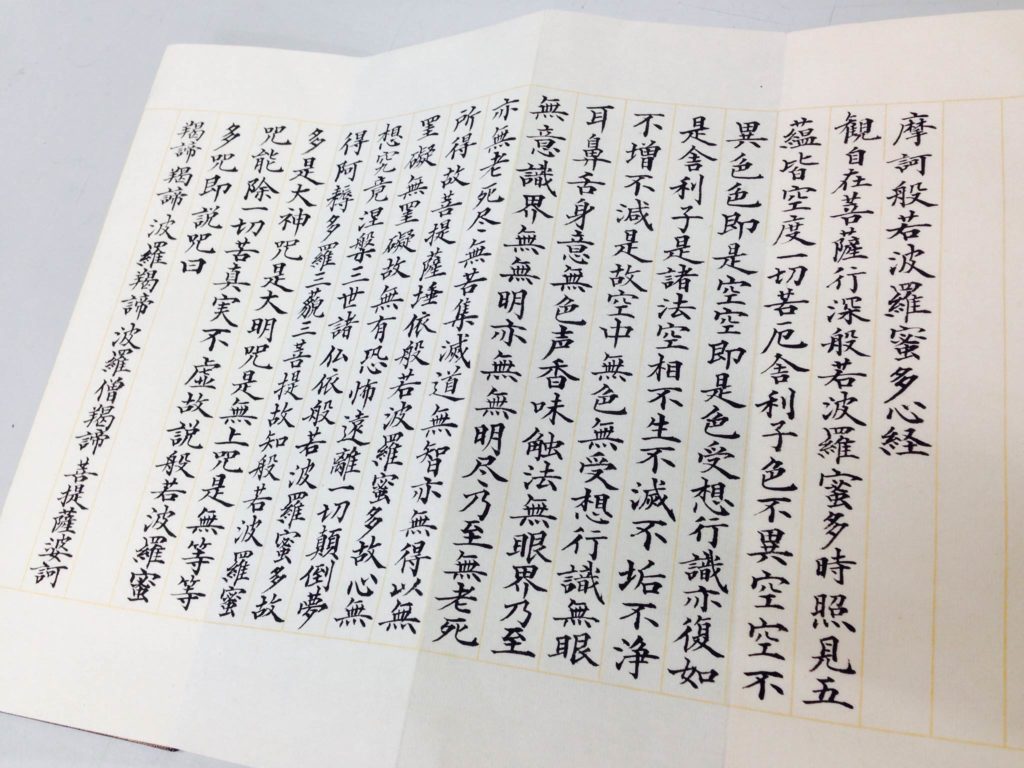 摩訶般若波羅蜜多心経
観自在菩薩行深般若波羅蜜多時照見五
蘊皆空度一切苦厄舎利子色不異空空不
異色色即是空空即是色受想行識亦復如
是舎利子是諸法空相不生不滅不垢不浄
不増不減是故空中無色無受想行識無眼
耳鼻舌身意無色声香味触法無眼界乃至
無意識界無無明亦無無明尽乃至無老死
亦無老死尽無苦集滅道無智亦無得以無
所得故菩提薩埵依般若波羅蜜多故心無
罣礙無罣礙故無有恐怖遠離一切顛倒夢
想究竟涅槃三世諸仏依般若波羅蜜多故
得阿耨多羅三藐三菩提故知般若波羅蜜
多是大神咒是大明咒是無上咒是無等等
咒能除一切苦真実不虚故説般若波羅蜜
多咒即説咒曰
羯諦羯諦 波羅羯諦 波羅僧羯諦 菩提薩婆訶